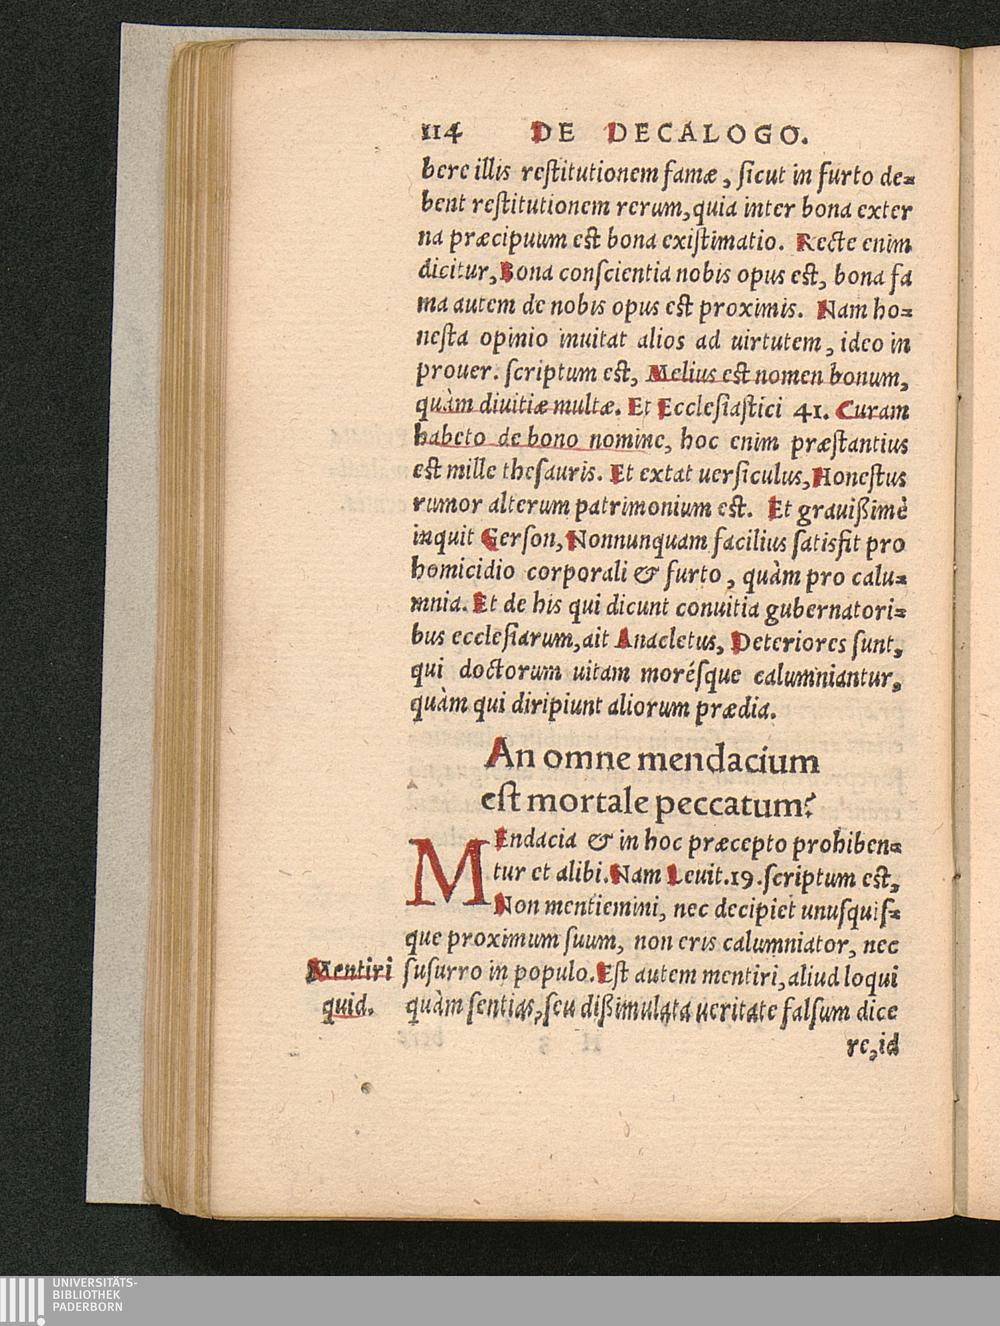 114 DE DECALOGO.
bere illis reſtitutionem famæ, ſicut in furto de=
bent reſtitutionem rerum, quia inter bona exter
na præcipuum eſt bona exiſtimatio. Recte enim
dicitur, Bona conſcientia nobis opus eſt, bona fa
ma autem de nobis opus eſt proximis. Nam ho=
neſta opinio inuitat alios ad uirtutem, ideo in
prouer. ſcriptum eſt, Melius eſt nomen bonum,
quàm diuitiæ multæ. Et Eccleſiaſtici 41. Curam
habeto de bono nomine, hoc enim præſtantius
eſt mille theſauris. Et extat uerſiculus, Honeſtus
rumor alterum patrimonium eſt. Et grauißimè
inquit Gerſon, Nonnunquam facilius ſatisfit pro
homicidio corporali & furto, quàm pro calu=
mnia. Et de his qui dicunt conuitia gubernatori=
bus eccleſiarum, ait Anacletus, Deteriores ſunt,
qui doctorum uitam moréſque calumniantur,
quàm qui diripiunt aliorum prædia.
An omne mendacium
eſt mortale peccatum?
MEndacia & in hoc præcepto prohiben=
tur et alibi. Nam Leuit. 19. ſcriptum eſt,
Non mentiemini, nec decipiet unuſquiſ=
que proximum ſuum, non eris calumniator, nec
Mentiri ſuſurro in populo. Eſt autem mentiri, aliud loqui
quid. quàm ſentias, ſeu dißimulata ueritate falſum dice
re, id
UNIVERSITÄTS-
BIBLIOTHEK
PADERBORN